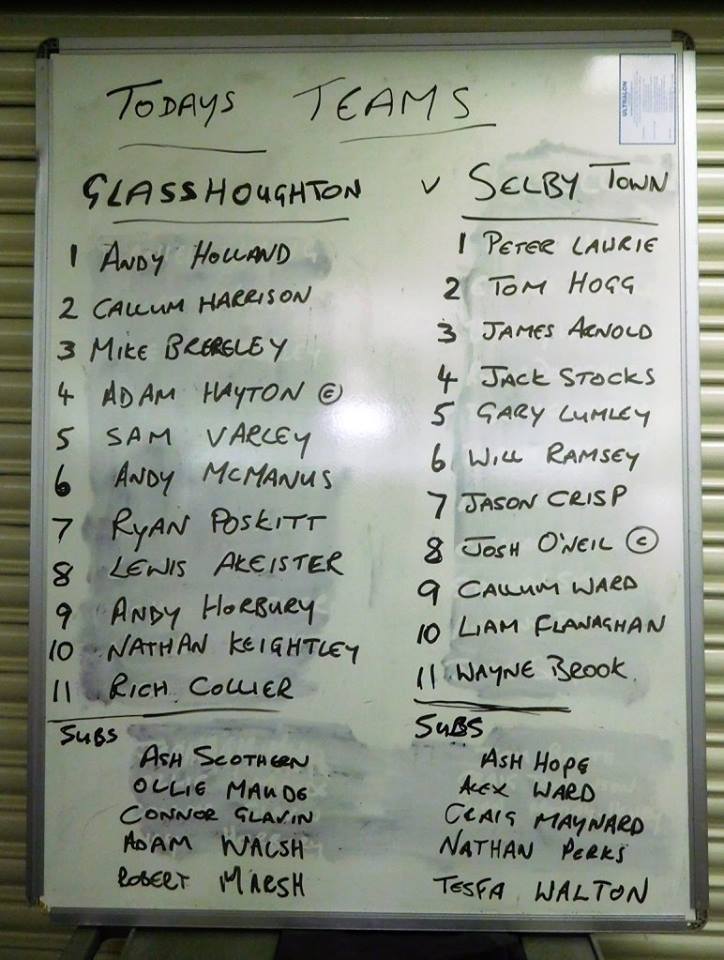 TODAYS TEAMS
GLASSHOUGHTON v SELBY TOWN
1 ANDY HOLLAND
2 CALLUM HARRISON
3 MIKE BRERELEY
4 ADAM HAYTON ©
5 SAM VARLEY
6 ANDY MCMANUS
7 RYAN POSKITT
8 LEWIS AKEISTER
9 ANDY HORBURY
10 NATHAN KEIGHTLEY
11 RICH COLLIER
SUBS
ASH SCOTHERN
OLLIE MAUDE
CONNOR GLAVIN
ADAM WALSH
ROBERT MARSH
1 PETER LAURIE
2 TOM HOGG
3 JAMES ARNOLD
4 JACK STOCKS
5 GARY LUMLEY
6 WILL RAMSEY
7 JASON CRISP
8 JOSH O'NEIL ©
9 CALLUM WARD
10 LIAM FLANAGHAN
11 WAYNE BROOK
SUBS
ASH HOPE
ALEX WARD
CRAIG MAYNARD
NATHAN PERKS
TESFA WALTON
ULTRALON